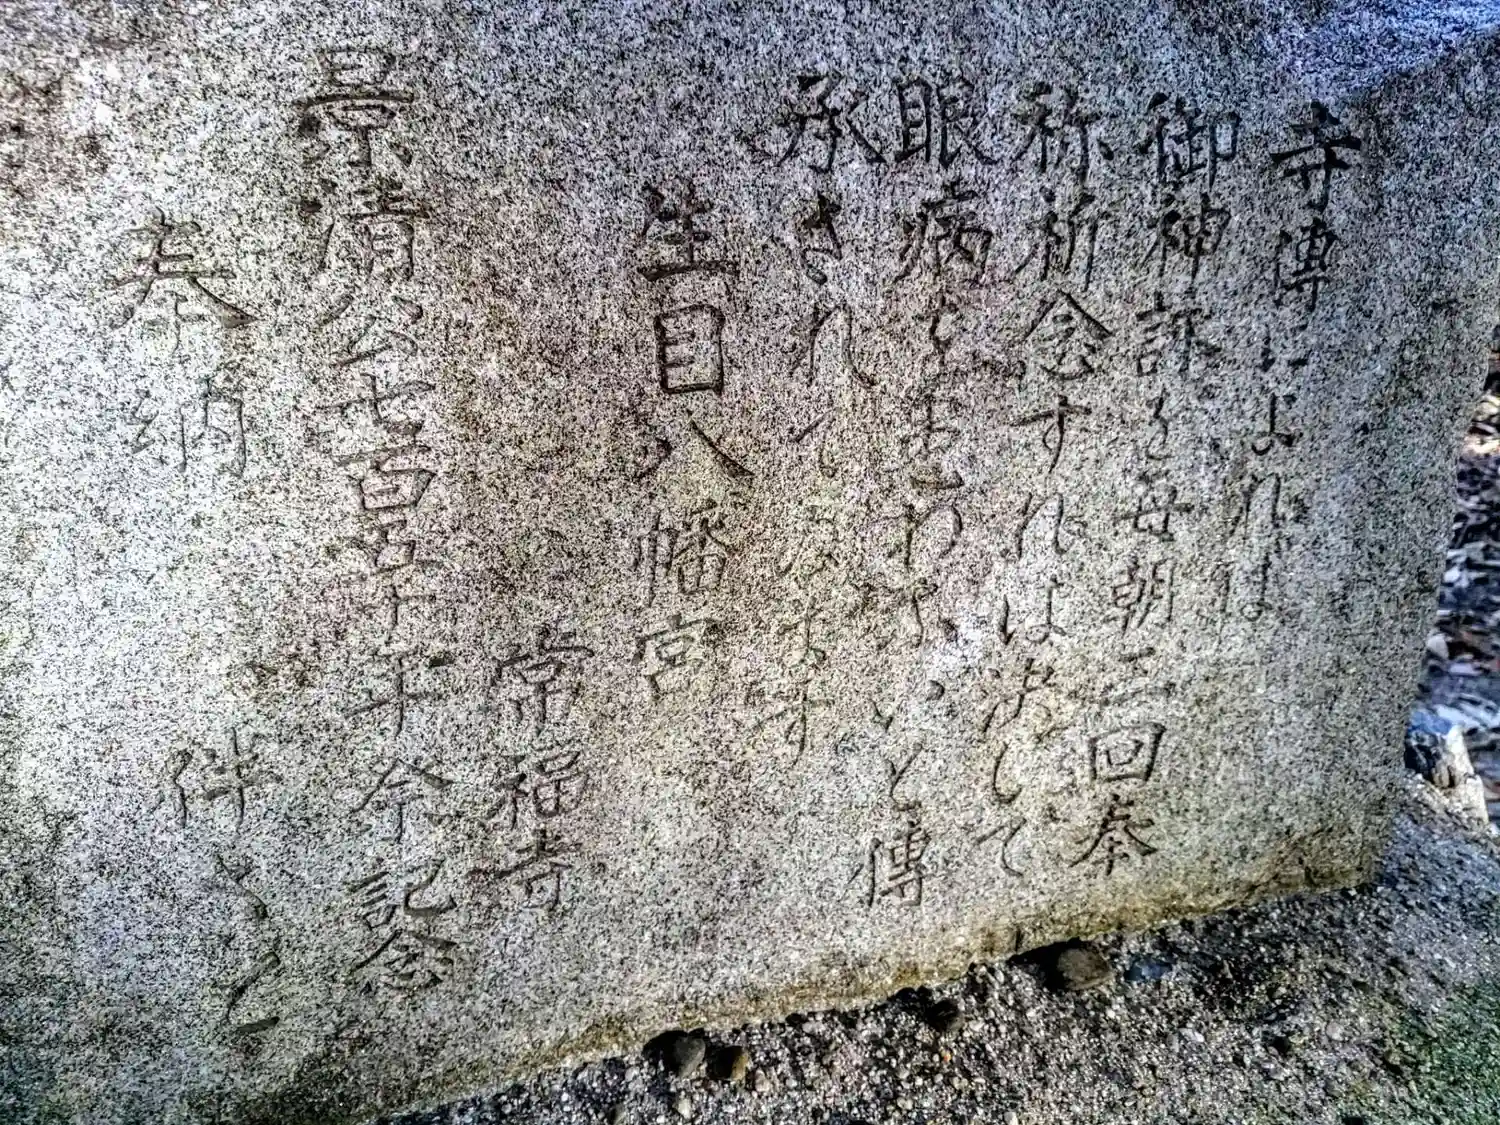 寺傳によれば
御神詠を毎朝三回奉
称祈念すれば決して
眼病 いと傳
承されて居ます
生目八幡宮
常福寺
景清公七百五十年 記念
奉納 伴